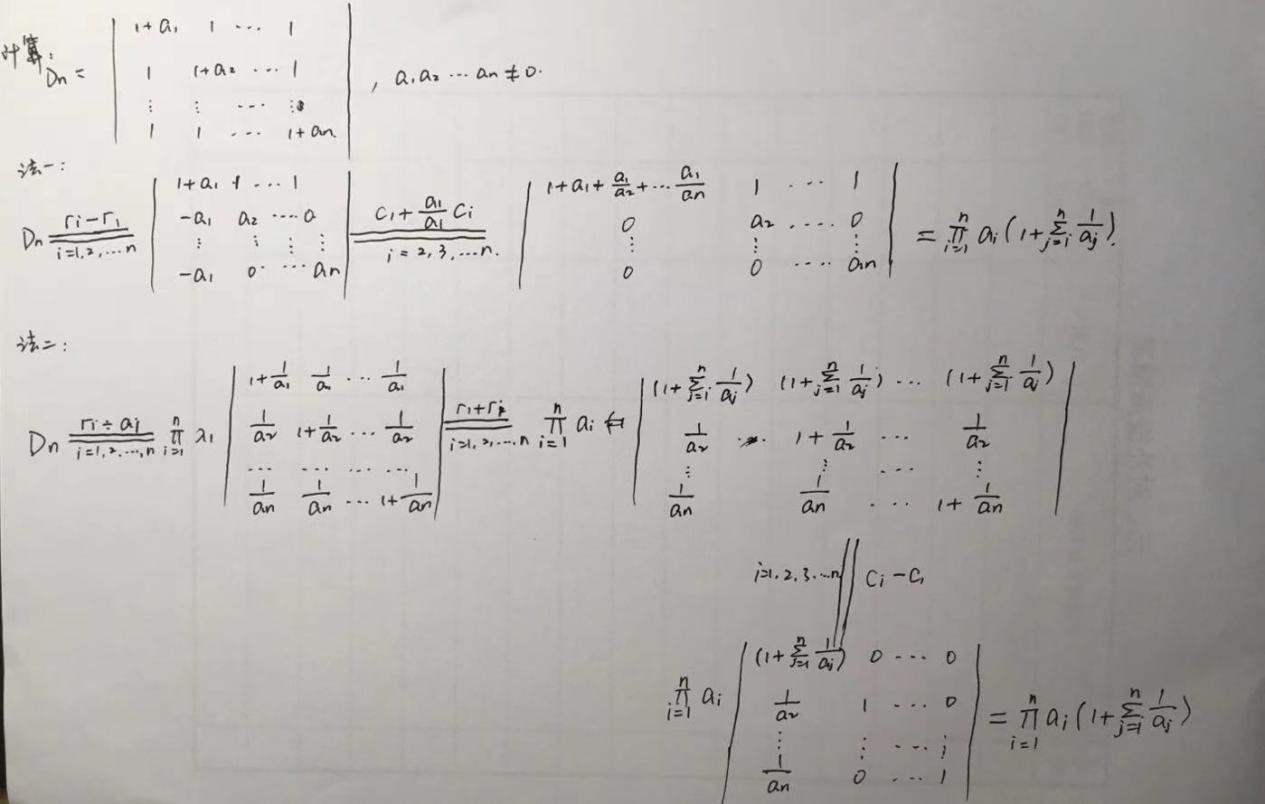 计算: Dn = | 1+a₁ 1 ··· 1 |
| 1 1+a₂ ··· 1 | , a₁a₂ ··· an ≠ 0.
| ⋮ ⋮ ··· ⋮ |
| 1 1 ··· 1+an |
法一:
Dn ==(rᵢ-r₁; i=1,2,···n)== | 1+a₁ 1 ··· 1 ; -a₁ a₂ ··· 0 ; ⋮ ⋮ ⋮ ⋮ ; -a₁ 0 ··· an | ==(C₁+a₁/a₁ Cᵢ; i=2,3,···n.)== | 1+a₁+a₁/a₂+···a₁/an 1 ··· 1 ; 0 a₂ ···· 0 ; ⋮ ⋮ ⋮ ; 0 0 ···· an | = ∏(i=1→n) aᵢ (1+∑(j=i→n) 1/aj).
法二:
Dn ==(rᵢ÷aj; i=1,2,···,n)== ∏(i=1→n) a₁ | 1+1/a₁ 1/a₁ ··· 1/a₁ ; 1/a₂ 1+1/a₂ ··· 1/a₂ ; ··· ··· ··· ··· ; 1/an 1/an ··· 1+1/an | ==(r₁+rᵢ; i=1,2,···,n)== ∏(i=1→n) aᵢ | (1+∑(j=1→n) 1/aj) (1+∑(j=1→n) 1/aj) ··· (1+∑(j=1→n) 1/aj) ; 1/a₂ 1+1/a₂ ··· 1/a₂ ; ⋮ ⋮ ··· ⋮ ; 1/an 1/an ··· 1+1/an |
i=1,2,3,···n || Cᵢ-C₁
∏(i=1→n) aᵢ | (1+∑(j=1→n) 1/aj) 0 ··· 0 ; 1/a₂ 1 ··· 0 ; ⋮ ⋮ ··· ⋮ ; 1/an 0 ··· 1 | = ∏(i=1→n) aᵢ (1+∑(j=1→n) 1/aj)